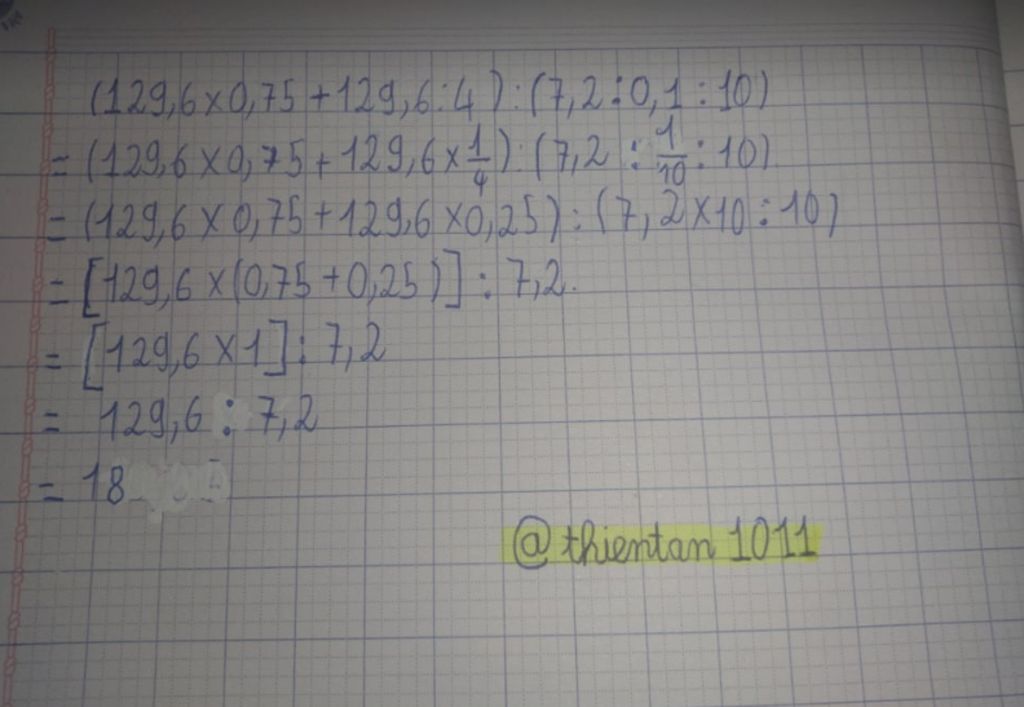 (129,6×0,75+129,6:4):(7,2:0,1:10)
=(129,6×0,75+129,6×1/4):(7,2:1/10:10)
=(129,6×0,75+129,6×0,25):(7,2×10:10)
=[129,6×(0,75+0,25)]:7,2.
=[129,6×1]:7,2
= 129,6:7,2
= 18
@thientan 1011